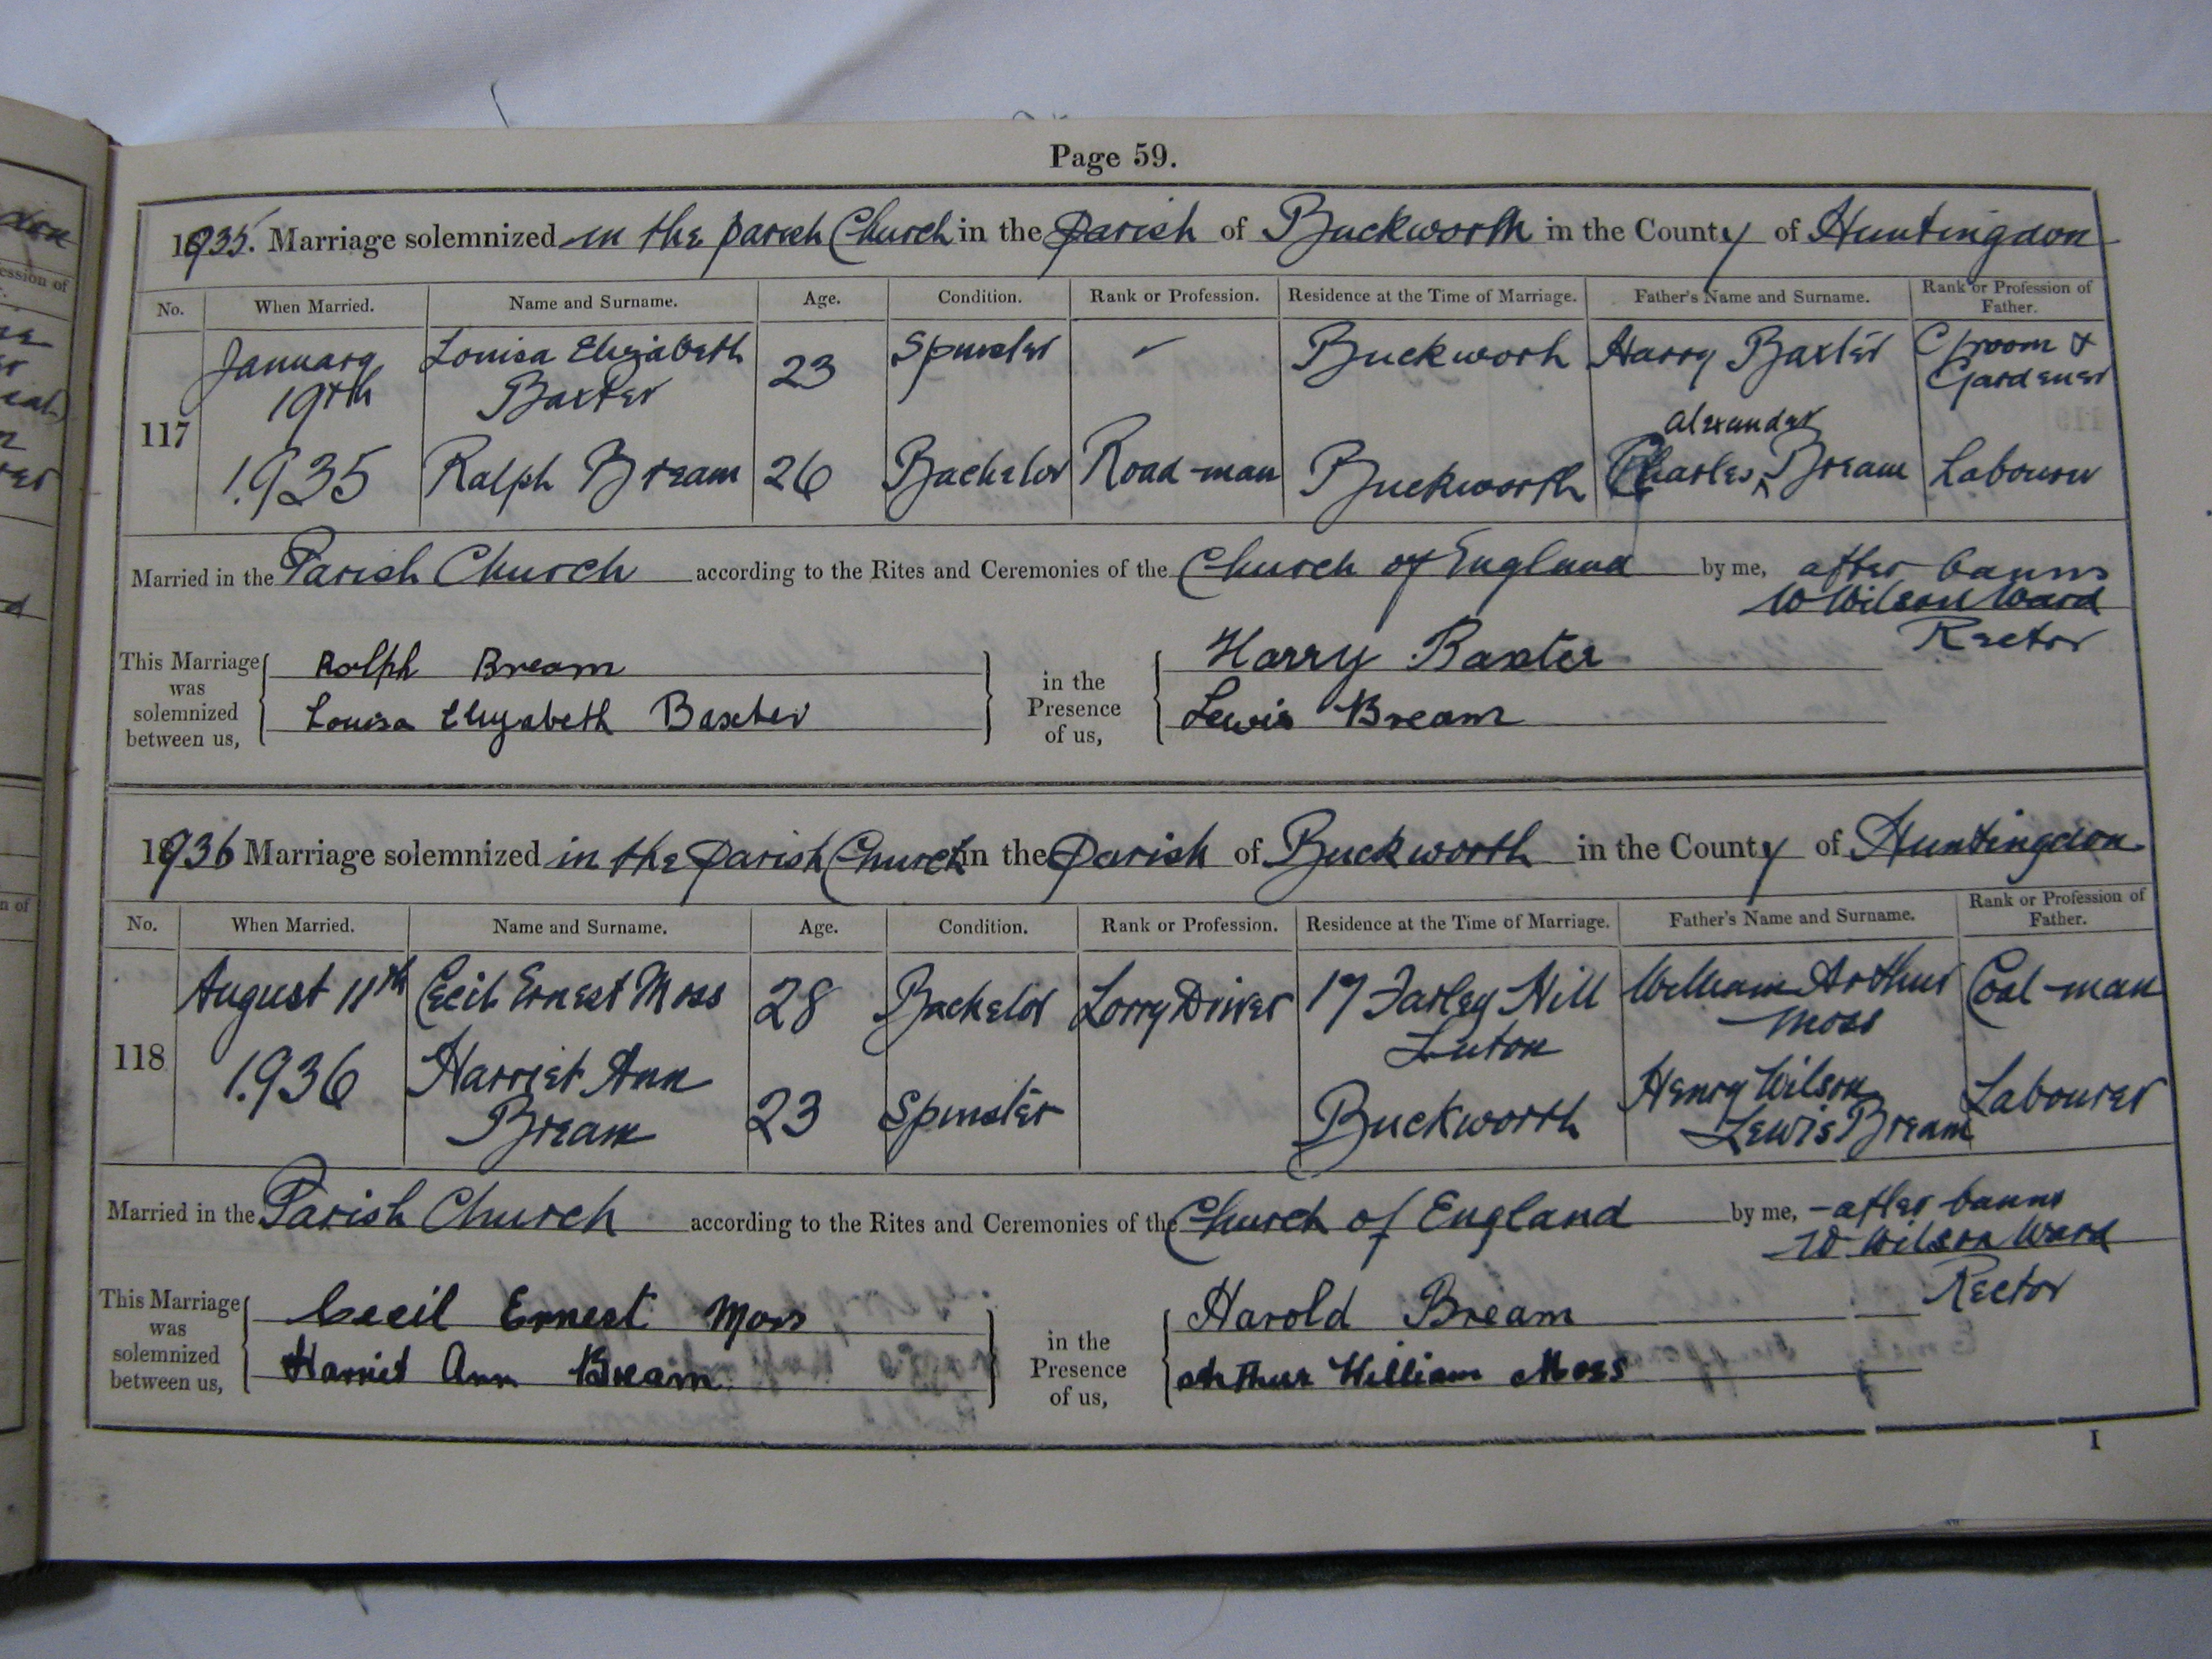 Page 59.
1935. Marriage solemnized in the parish Church in the Parish of Buckworth in the County of Huntingdon
No. When Married. Name and Surname. Age. Condition. Rank or Profession. Residence at the Time of Marriage. Father's Name and Surname. Rank or Profession of Father.
117 January 19th 1935 Louisa Elizabeth Baxter 23 Spinster Buckworth Harry Baxter Groom & Gardener
Ralph Bream 26 Bachelor Road-man Buckworth Charles Alexander Bream Labourer
Married in the Parish Church according to the Rites and Ceremonies of the Church of England by me, after banns
W Wilson Ward
Rector
This Marriage was solemnized between us, Ralph Bream
Louisa Elizabeth Baxter
in the Presence of us, Harry Baxter
Lewis Bream
1936 Marriage solemnized in the parish Church in the Parish of Buckworth in the County of Huntingdon.
No. When Married. Name and Surname. Age. Condition. Rank or Profession. Residence at the Time of Marriage. Father's Name and Surname. Rank or Profession of Father.
118 August 11th 1936 Cecil Ernest Moss 28 Bachelor Lorry Driver 17 Farley Hill Luton William Arthur Moss Coal-man
Harriet Ann Bream 23 Spinster Buckworth Henry Wilson Lewis Bream Labourer
Married in the Parish Church according to the Rites and Ceremonies of the Church of England by me, - after banns
W Wilson Ward
Rector
This Marriage was solemnized between us, Cecil Ernest Moss
Harriet Ann Bream
in the Presence of us, Harold Bream
Arthur William Moss
I